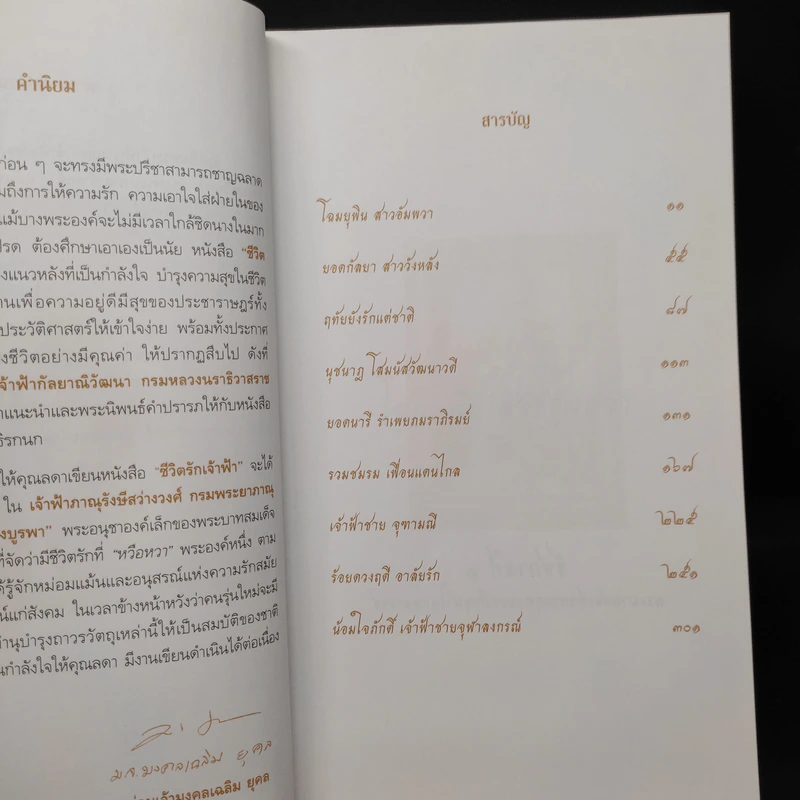 คำนิยม
ก่อน ๆ จะทรงมีพระปรีชาสามารถชาญฉลาด
ถึงการให้ความรัก ความเอาใจใส่ฝ่ายในของ
แม้บางพระองค์จะไม่มีเวลาใกล้ชิดนางในมาก
ต้องศึกษาเอาเองเป็นนัย หนังสือ “ชีวิต
แนวหลังที่เป็นกำลังใจ บำรุงความสุขในชีวิต
เพื่อความอยู่ดีมีสุขของประชาราษฎร์ทั้ง
ประวัติศาสตร์ให้เข้าใจง่าย พร้อมทั้งประกาศ
ชีวิตอย่างมีคุณค่า ให้ปรากฏสืบไป ดังที่
เจ้าฟ้ากัลยาณิวัฒนา กรมหลวงนราธิวาสราช
แนะนำและพระนิพนธ์คำปรารภให้กับหนังสือ
ให้คุณลดาเขียนหนังสือ “ชีวิตรักเจ้าฟ้า” จะได้
ใน เจ้าฟ้าภาณุรังษีสว่างวงศ์ กรมพระยาภาณุ
บูรพา” พระอนุชาองค์เล็กของพระบาทสมเด็จ
ที่จัดว่ามีชีวิตรักที่ “หวือหวา” พระองค์หนึ่ง ตาม
ได้รู้จักหม่อมแม้นและอนุสรณ์แห่งความรักสมัย
แก่สังคม ในเวลาข้างหน้าหวังว่าคนรุ่นใหม่จะมี
ทำนุบำรุงถาวรวัตถุเหล่านี้ให้เป็นสมบัติของชาติ
กำลังใจให้คุณลดา มีงานเขียนดำเนินได้ต่อเนื่อง
ม.จ.มงคลเฉลิม ยุคล
เจ้ามงคลเฉลิม ยุคล
สารบัญ
โฉมยุพิน สาวอัมพวา ๑๑
ยอดกัลยา สาววังหลัง ๕๕
ฤทัยยังรักแต่ชาติ ๘๗
นุชนาฏ โสมนัสวัฒนาวดี ๑๑๓
ยอดนารี รำเพยภมราภิรมย์ ๑๓๑
รวมชมรม เพื่อนแดนไกล ๑๖๗
เจ้าฟ้าชาย จุฑามณี ๒๒๕
ร้อยดวงฤดี อาลัยรัก ๒๕๑
น้อมใจภักดิ์ เจ้าฟ้าชายจุฬาลงกรณ์ ๓๐๑